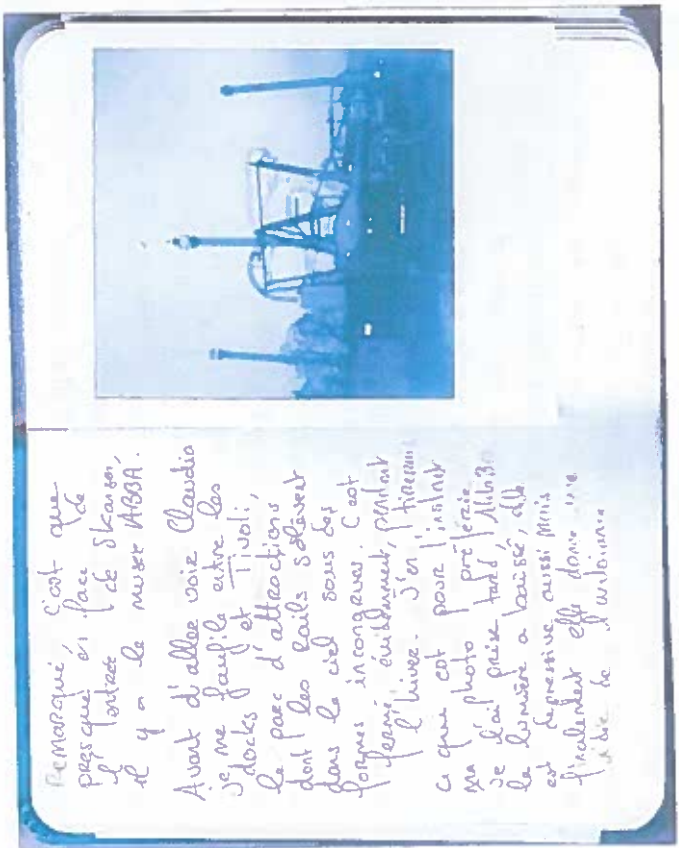 Remarqué, c'est que
presque en face de
l'entrée de Skansen,
il y a le musée ABBA.
Avant d'aller voir Claudia
je me faufile entre les
docks et Tivoli,
le parc d'attractions
dont les rails s'élèvent
dans le ciel sous des
formes incongrues. C'est
fermé évidemment, pendant
l'hiver. J'en tirerai
ce qui est pour l'instant
ma photo préférée
je l'ai prise tard, 16h30
la lumière a baissé, elle
est dépressive aussi mais
finalement elle donne une
idée de